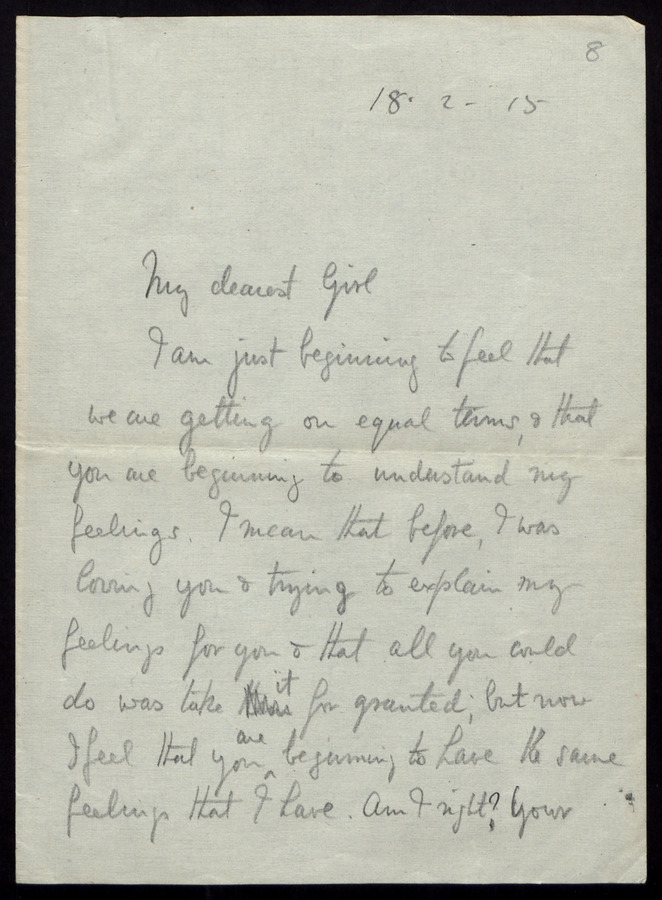 8
18. 2 - 15
My dearest Girl
I am just beginning to feel that
we are getting on equal terms, & that
you are beginning to understand my
feelings. I mean that before, I was
loving you & trying to explain my
feelings for you & that all you could
do was take it for granted; but now
I feel that you are beginning to have the same
feelings that I have. Am I right? Your